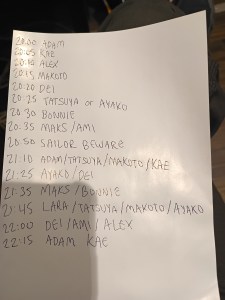 20:00 ADAM
20:05 KAE
20:10 ALEX
20:15 MAKOTO
20:20 DEI
20:25 TATSUYA or AYAKO
20:30 BONNIE
20:35 MAKS/AMI
20:50 SAILOR BEWARE
21:10 ADAM/TATSUYA/MAKOTO/KAE
21:25 AYAKO/DEI
21:35 MAKS/BONNIE
21:45 LARA/TATSUYA/MAKOTO/AYAKO
22:00 DEI/AMI/ALEX
22:15 ADAM KAE